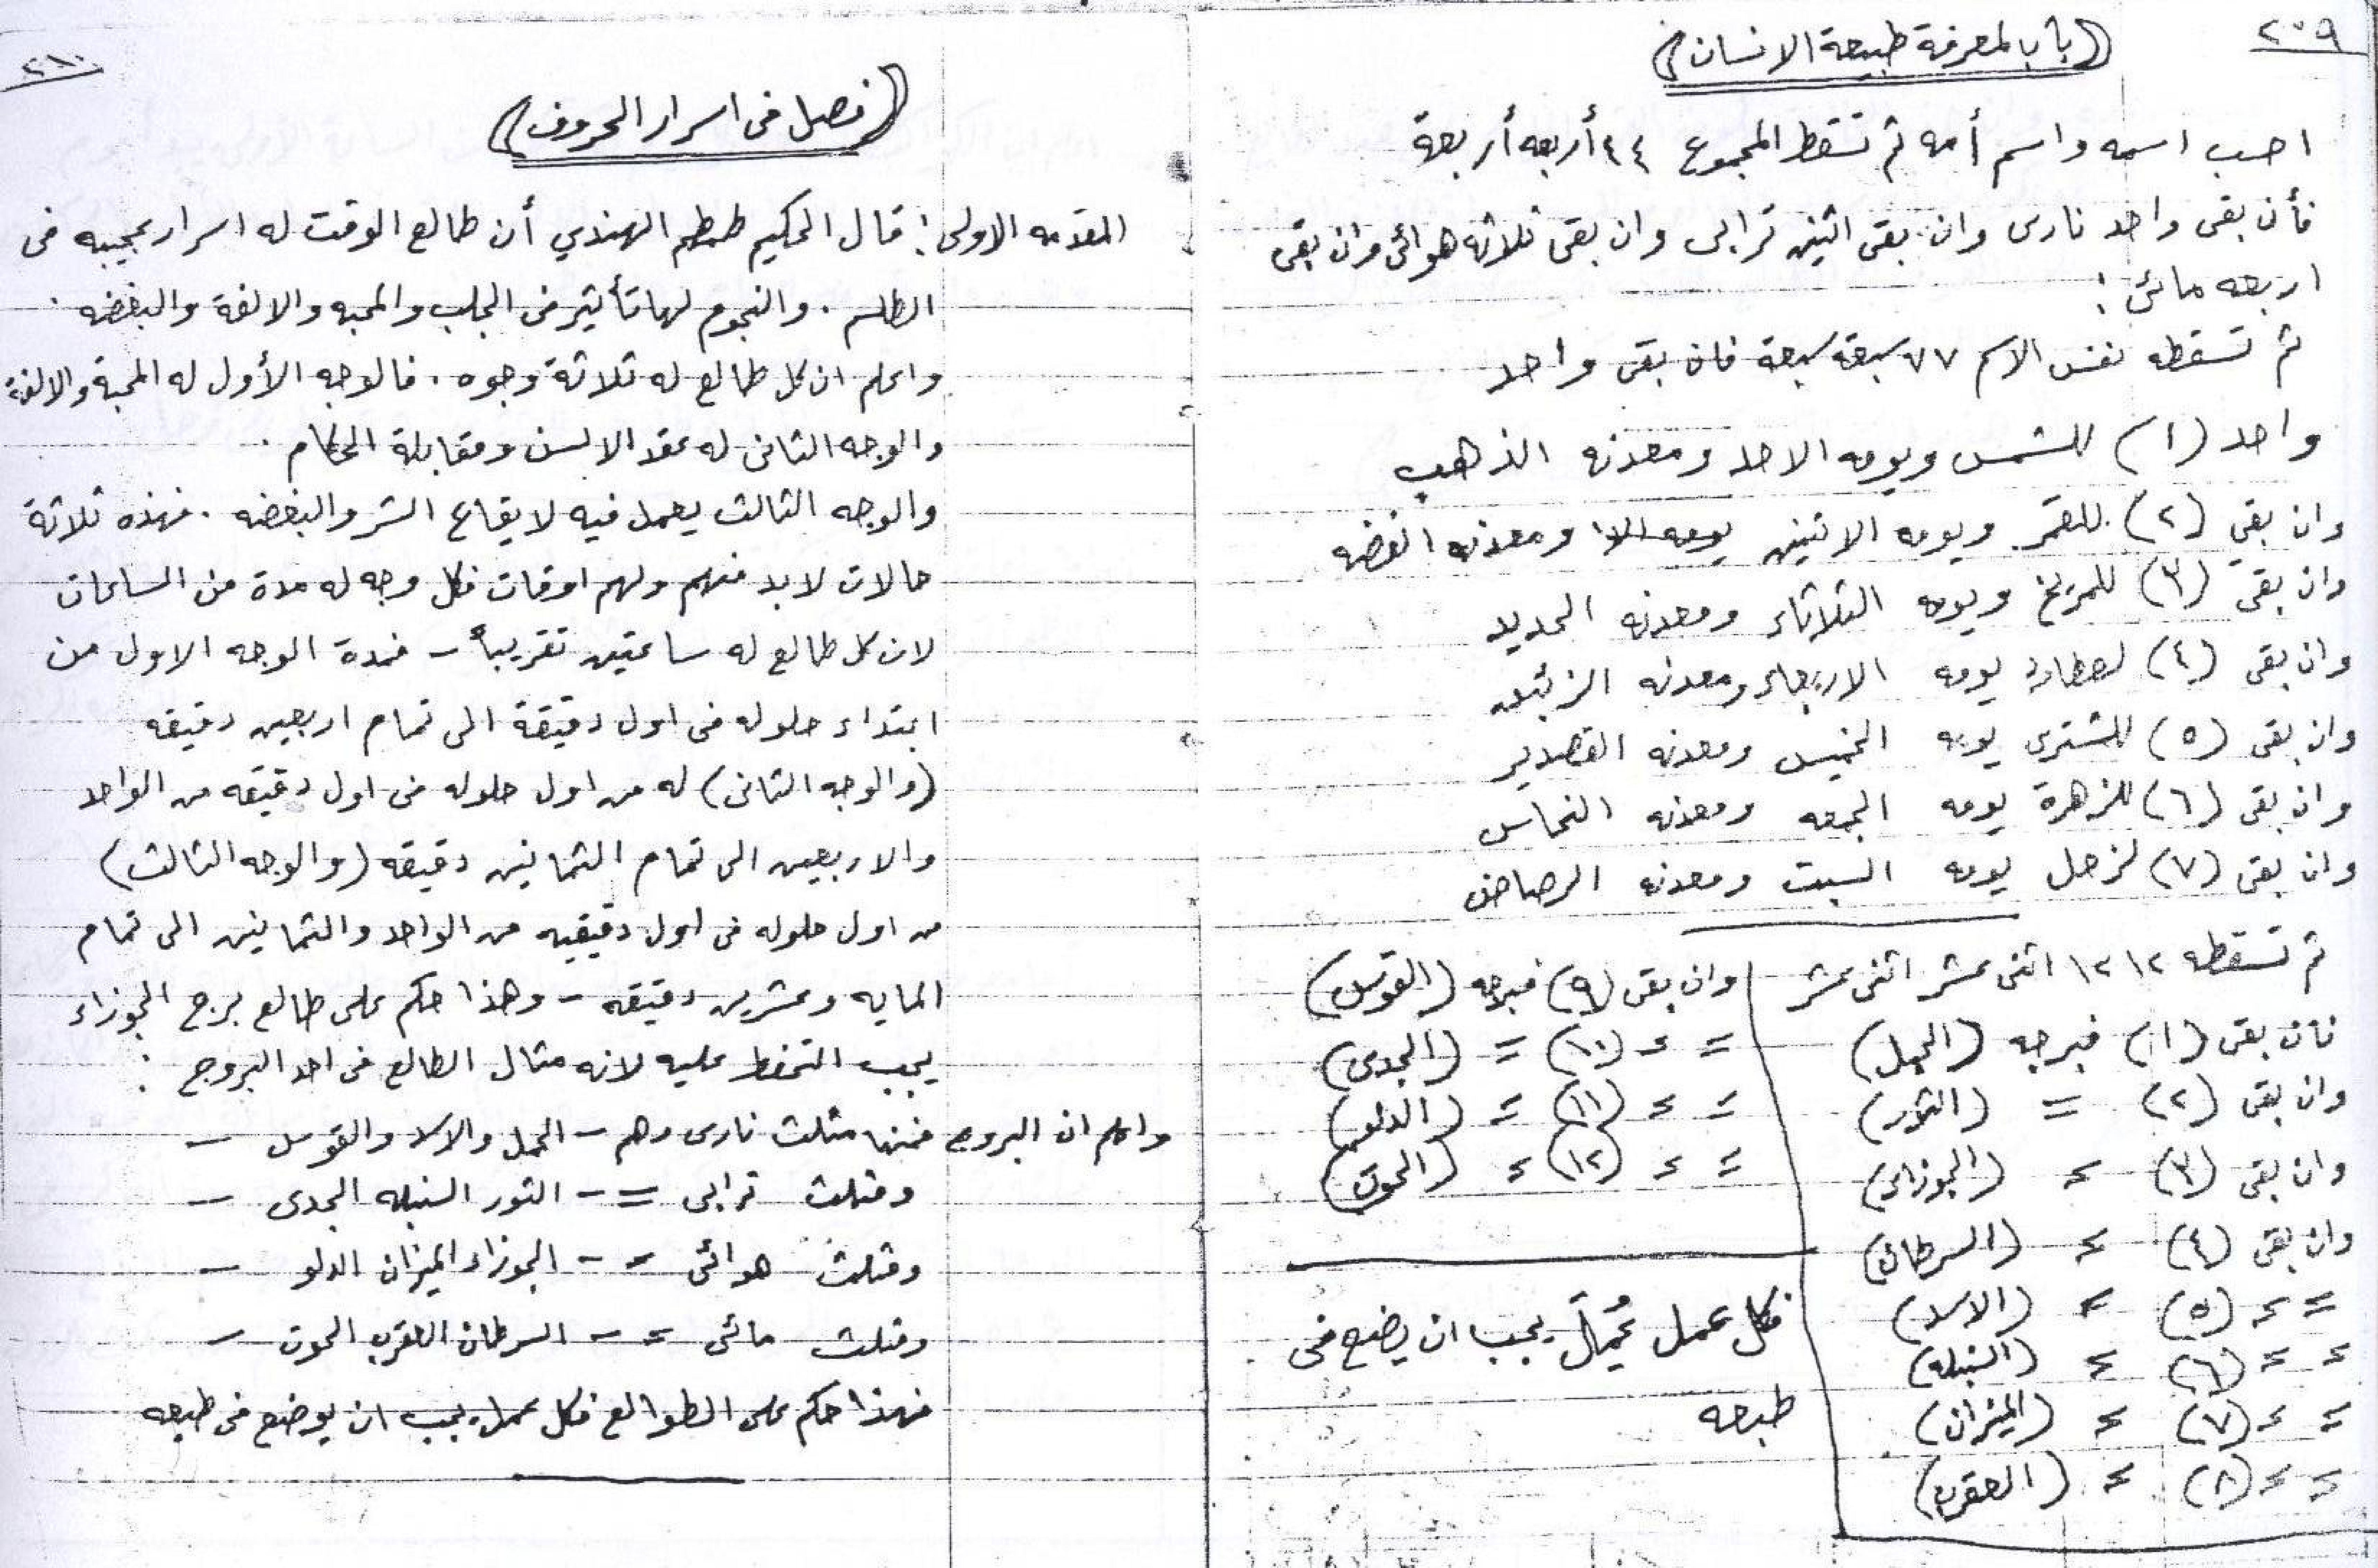 ٢٠٩
(باب لمعرفة طبيعة الانسان)
احسب اسمه واسم أمه ثم تسقط المجموع ٤٤ أربعه أربعة
فأن بقى واحد نارى وان بقى اثنين ترابى وان بقى ثلاثه هوائى وان بقى
اربعه مائى :
ثم تسقطه نفس الاسم ٧٧ سبعة سبعة فان بقى واحد
واحد (١) للشمس ويومه الاحد ومعدنه الذهب
وان بقي (٢) للقمر ويومه الاثنين ومعدنه الفضه
وان بقى (٣) للمريخ ويومه الثلاثاء ومعدنه الحديد
وان بقى (٤) لعطارد يومه الاربعاء ومعدنه الزئبق
وان بقى (٥) للمشترى يومه الخميس ومعدنه القصدير
وان بقى (٦) للزهرة يومه الجمعه ومعدنه النحاس
وان بقى (٧) لزحل يومه السبت ومعدنه الرصاص
ثم تسقطه ١٢ ١٢ اثنى عشر اثنى عشر
فان بقى (١) فبرجه (الحمل)
وان بقى (٢) = (الثور)
وان بقى (٣) = (الجوزاء)
وان بقى (٤) = (السرطان)
= = (٥) = (الاسد)
= = (٦) = (السنبله)
= = (٧) = (الميزان)
= = (٨) = (العقرب)
وان بقى (٩) فبرجه (القوس)
= = (١٠) = (الجدى)
= = (١١) = (الدلو)
= = (١٢) = (الحوت)
فكل عمل يجب ان يضع فى
طبعه
٢١٠
(فصل فى اسرار الحروف)
المقدمه الاولى : قال الحكيم طمطم الهندي أن طالع الوقت له اسرار عجيبه فى
الطلسم . والنجوم لها تأثير فى الجلب والمحبه والالفة والبغضه .
واعلم ان كل طالع له ثلاثة وجوه . فالوجه الأول له المحبة والالفة
والوجه الثانى له عقد الالسن ومقابلة الحكام .
والوجه الثالث يعمل فيه لايقاع الشر والبغضه . فهذه ثلاثة
حالات لابد منهم ولهم اوقات فكل وجه له مدة من الساعات
لان كل طالع له ساعتين تقريباً - فمدة الوجه الاول من
ابتداء حلوله فى اول دقيقة الى تمام اربعين دقيقه
(والوجه الثانى) له من اول حلوله فى اول دقيقه من الواحد
والاربعين الى تمام الثمانين دقيقه (والوجه الثالث)
من اول حلوله فى اول دقيقيه من الواحد والثمانين الى تمام
المايه وعشرين دقيقه - وهذا حكم على طالع برج الجوزاء
يجب التحفظ عليه لانه مثال الطالع فى احد البروج :
واعلم ان البروج فمنها مثلث نارى وهم - الحمل والاسد والقوس -
ومثلث ترابى = - الثور السنبله الجدى -
ومثلث هوائى = - الجوزاء الميزان الدلو -
ومثلث مائى = - السرطان العقرب الحوت -
فهذا حكم على الطوالع فكل عمل يجب ان يوضع فى طبعه